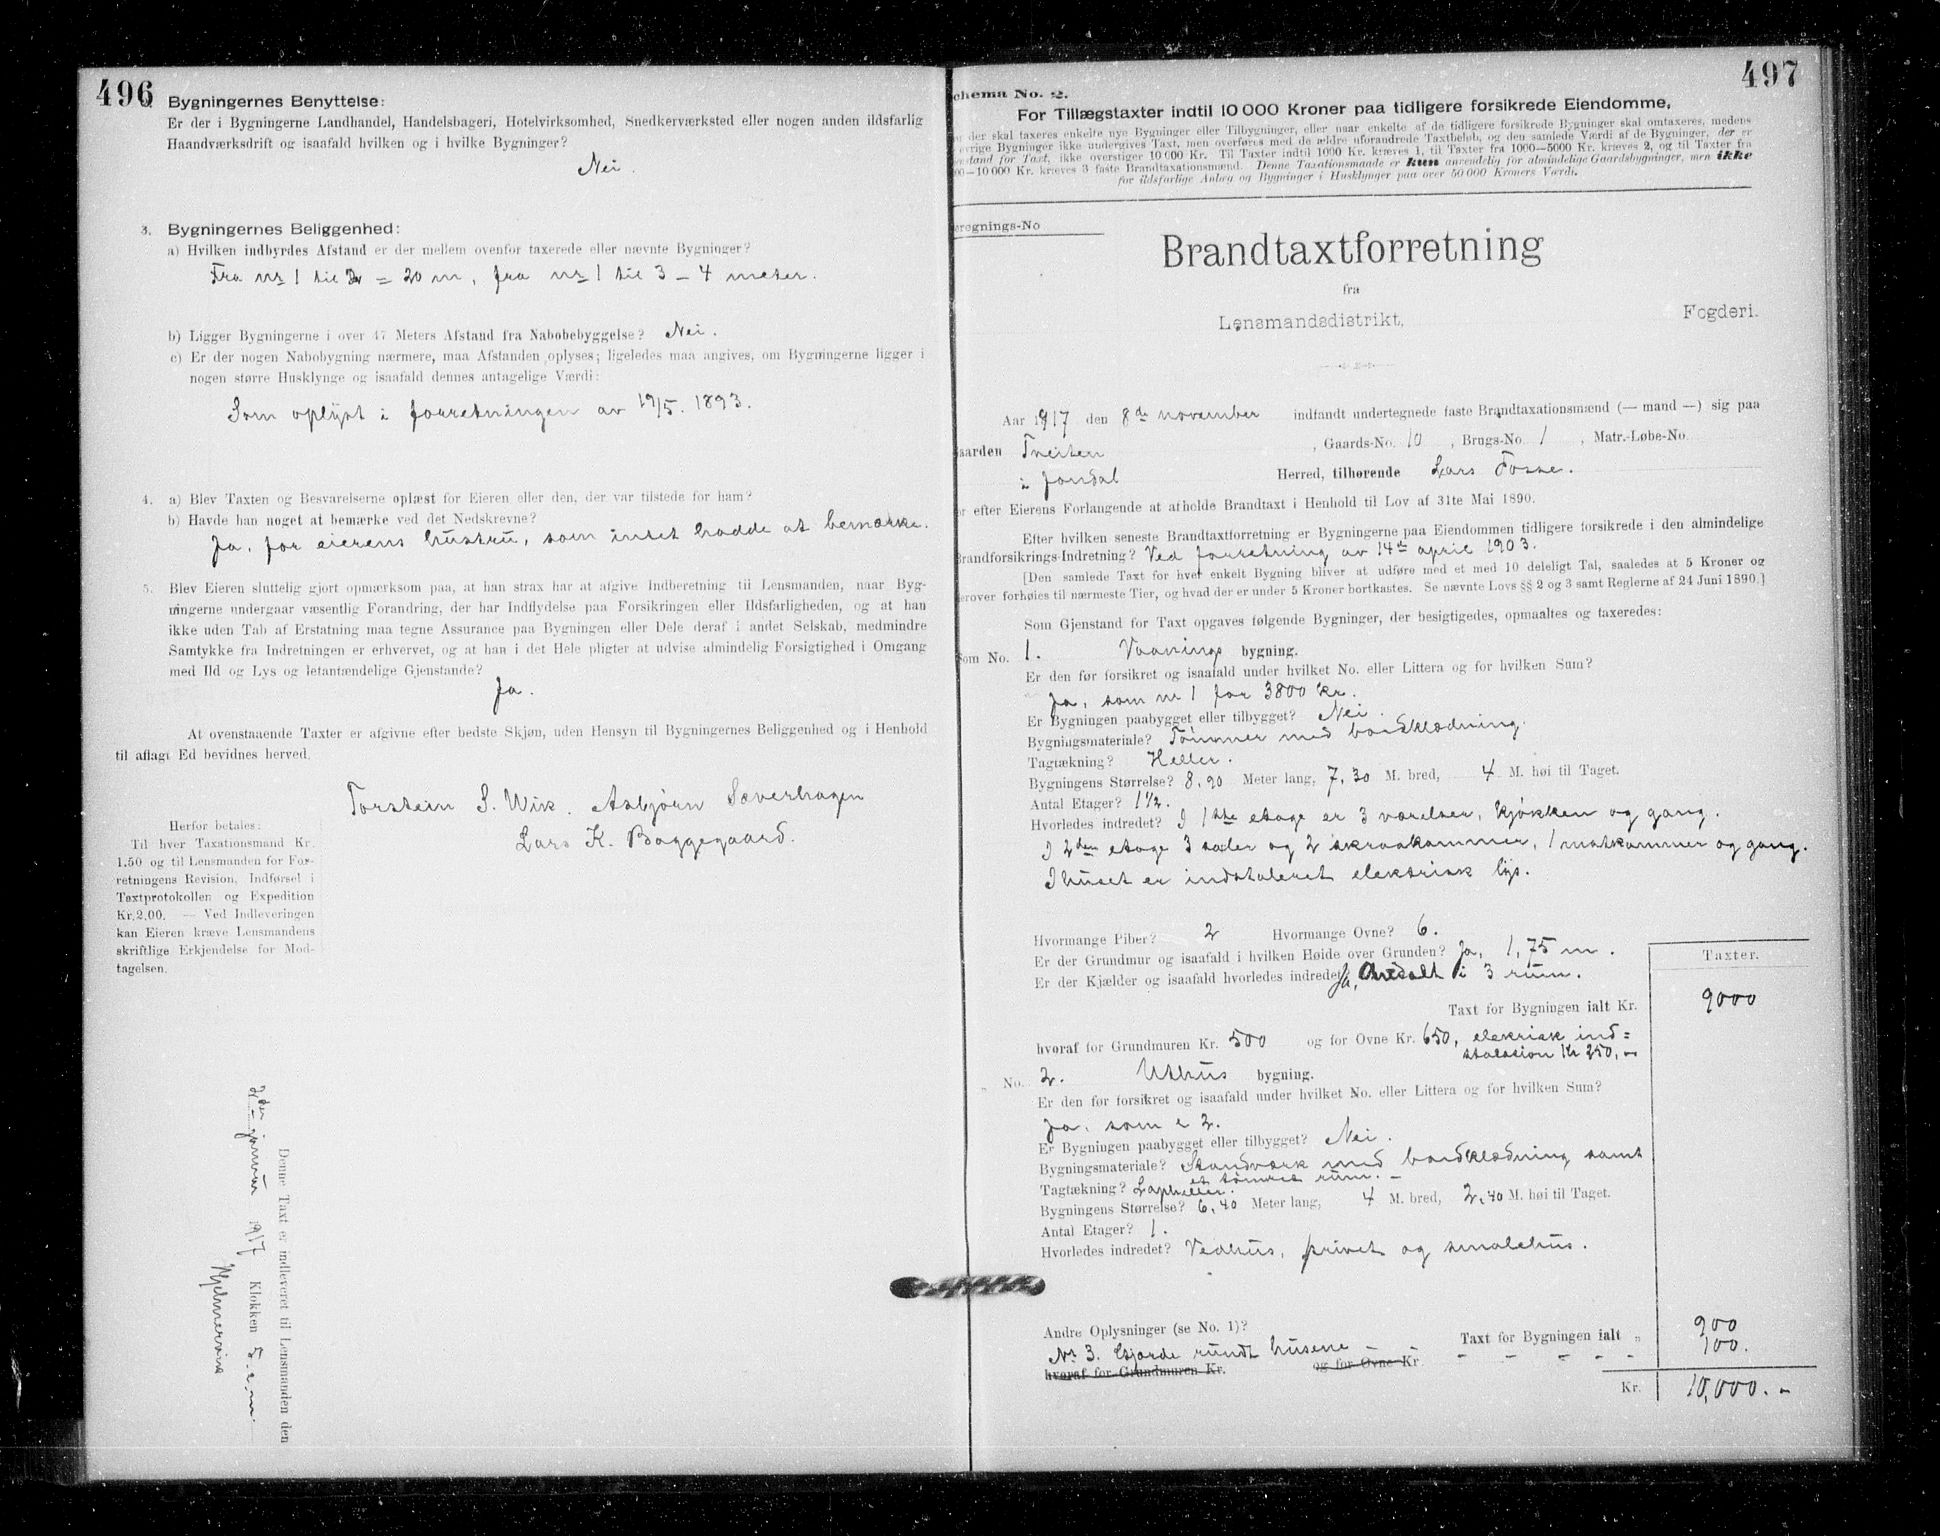 496
Bygningernes Benyttelse:
Er der i Bygningerne Landhandel, Handelsbageri, Hotelvirksomhed, Snedkerværksted eller nogen anden ildsfarlig
Haandværksdrift og isaafald hvilken og i hvilke Bygninger?
Nei.
3. Bygningernes Beliggenhed:
a) Hvilken indbyrdes Afstand er der mellem ovenfor taxerede eller nævnte Bygninger?
Fra nr 1 til 2 = 20 m, fra nr 1 til 3 – 4 meter.
b) Ligger Bygningerne i over 47 Meters Afstand fra Nabobebyggelse? Nei.
c) Er der nogen Nabobygning nærmere, maa Afstanden oplyses; ligeledes maa angives, om Bygningerne ligger i
nogen større Husklynge og isaafald dennes antagelige Værdi:
Som oplyst i forretningen av 19/5. 1893.
4. a) Blev Taxten og Besvarelserne oplæst for Eieren eller den, der var tilstede for ham?
b) Havde han noget at bemærke ved det Nedskrevne?
Ja, for eierens hustru, som intet hadde at bemærke.
5. Blev Eieren sluttelig gjort opmærksom paa, at han strax har at afgive Indberetning til Lensmanden, naar Byg-
ningerne undergaar væsentlig Forandring, der har Indflydelse paa Forsikringen eller Ildsfarligheden, og at han
ikke uden Tab af Erstatning maa tegne Assurance paa Bygningen eller Dele deraf i andet Selskab, medmindre
Samtykke fra Indretningen er erhvervet, og at han i det Hele pligter at udvise almindelig Forsigtighed i Omgang
med Ild og Lys og letantændelige Gjenstande?
Ja.
At ovenstaaende Taxter er afgivne efter bedste Skjøn, uden Hensyn til Bygningernes Beliggenhed og i Henhold
til aflagt Ed bevidnes herved.
Torstein S. Wik. Asbjørn Sæverhagen
Lars K. Baggegaard.
Herfor betales:
Til hver Taxationsmand Kr.
1.50 og til Lensmanden for For-
retningens Revision, Indførsel i
Taxtprotokollen og Expedition
Kr. 2.00. — Ved Indleveringen
kan Eieren kræve Lensmandens
skriftlige Erkjendelse for Mod-
tagelsen.
Denne Taxt er indleveret til Lensmanden den
2den januar 1917 Klokken 5 e.m.
497
chema No. 2.
For Tillægstaxter indtil 10 000 Kroner paa tidligere forsikrede Eiendomme,
der skal taxeres enkelte nye Bygninger eller Tilbygninger, eller naar enkelte af de tidligere forsikrede Bygninger skal omtaxeres, medens
øvrige Bygninger ikke undergives Taxt, men overføres med de ældre uforandrede Taxtbeløb, og den samlede Værdi af de Bygninger, der er
Gjenstand for Taxt, ikke overstiger 10 000 Kr. Til Taxter indtil 1000 Kr. kræves 1, til Taxter fra 1000—5000 Kr. kræves 2, og til Taxter fra
00—10 000 Kr. kræves 3 faste Brandtaxationsmænd. Denne Taxationsmaade er kun anvendelig for almindelige Gaardsbygninger, men ikke
for ildsfarlige Anlæg og Bygninger i Husklynger paa over 50 000 Kroners Værdi.
eregnings-No
Brandtaxtforretning
fra
Lensmandsdistrikt, Fogderi.
Aar 1917 den 8de november indfandt undertegnede faste Brandtaxationsmænd (— mand —) sig paa
aarden Tveiten, Gaards-No. 10, Brugs-No. 1, Matr.-Løbe-No.
i Jondal Herred, tilhørende Lars Fosse.
or efter Eierens Forlangende at afholde Brandtaxt i Henhold til Lov af 31te Mai 1890.
Efter hvilken seneste Brandtaxtforretning er Bygningerne paa Eiendommen tidligere forsikrede i den almindelige
Brandforsikrings-Indretning? Ved forretning av 14de april 1903.
[Den samlede Taxt for hver enkelt Bygning bliver at udføre med et med 10 deleligt Tal, saaledes at 5 Kroner og
erover forhøies til nærmeste Tier, og hvad der er under 5 Kroner bortkastes. Se nævnte Lovs §§ 2 og 3 samt Reglerne af 24 Juni 1890.]
Som Gjenstand for Taxt opgaves følgende Bygninger, der besigtigedes, opmaaltes og taxeredes:
Som No. 1. Vaanings bygning.
Er den før forsikret og isaafald under hvilket No. eller Littera og for hvilken Sum?
Ja, som nr 1 for 3800 kr.
Er Bygningen paabygget eller tilbygget? Nei.
Bygningsmateriale? Tømmer med bordklædning.
Tagtækning? Heller.
Bygningens Størrelse? 8,90 Meter lang, 7,30 M. bred, 4 M. høi til Taget.
Antal Etager? 1½.
Hvorledes indredet? I 1ste etage er 3 værelser, kjøkken og gang.
I 2den etage 3 saler og 2 skraakammer, 1 matkammer og gang.
I huset er indstaleret elektrisk lys.
Hvormange Piber? 2 Hvormange Ovne? 6.
Er der Grundmur og isaafald i hvilken Høide over Grunden? Ja, 1,75 m.
Er der Kjælder og isaafald hvorledes indredet Ja, i 3 rum.
Taxter.
Taxt for Bygningen ialt Kr. 9000
hvoraf for Grundmuren Kr. 500 og for Ovne Kr. 650, elekrisk ind=
stalasion Kr 250,-
„ No. 2. Uthus bygning.
Er den før forsikret og isaafald under hvilket No. eller Littera og for hvilken Sum?
Ja, som e 2.
Er Bygningen paabygget eller tilbygget? Nei.
Bygningsmateriale? Standværk med bordklædning samt
et tømret rum. –
Tagtækning? Lapheller.
Bygningens Størrelse? 6,40 Meter lang, 4 M. bred, 2,40 M. høi til Taget.
Antal Etager? 1.
Hvorledes indredet? Vedhus, privet og smalehus.
Andre Oplysninger (se No. 1)? Taxt for Bygningen ialt „ 900
Nr 3. Gjærde rundt husene – – – – – – – 100.
hvoraf for Grundmuren Kr. og for Ovne Kr.
Kr. 10,000.-